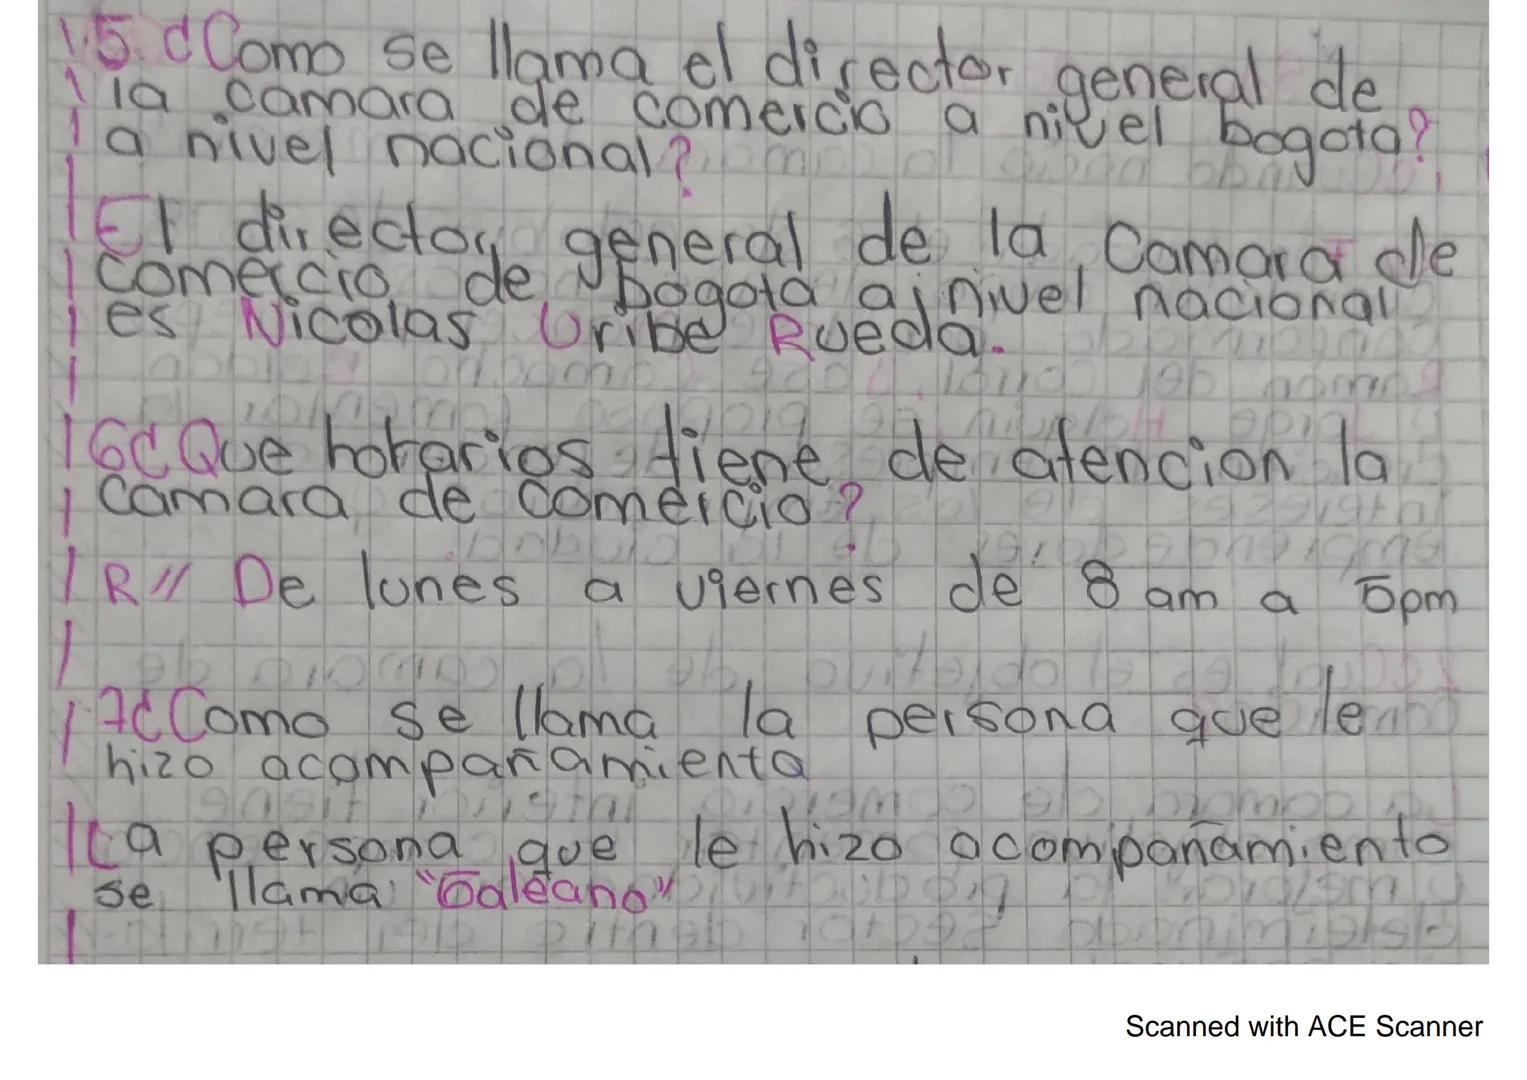 5. ¿Como se llama el director general de
la camara de comercio a nivel bogota?
a nivel nacional?
El director general de la Camara de
comercio de bogota a nivel nacional
es Nicolas Uribe Rueda.
6¿Que horarios tiene de atencion la
camara de comercio?
R// De lunes a viernes de 8 am a 5pm
7¿Como se llama la persona que le
hizo acompañamiento
La persona que le hizo acompañamiento
se llama "Galeano"
Scanned with ACE Scanner